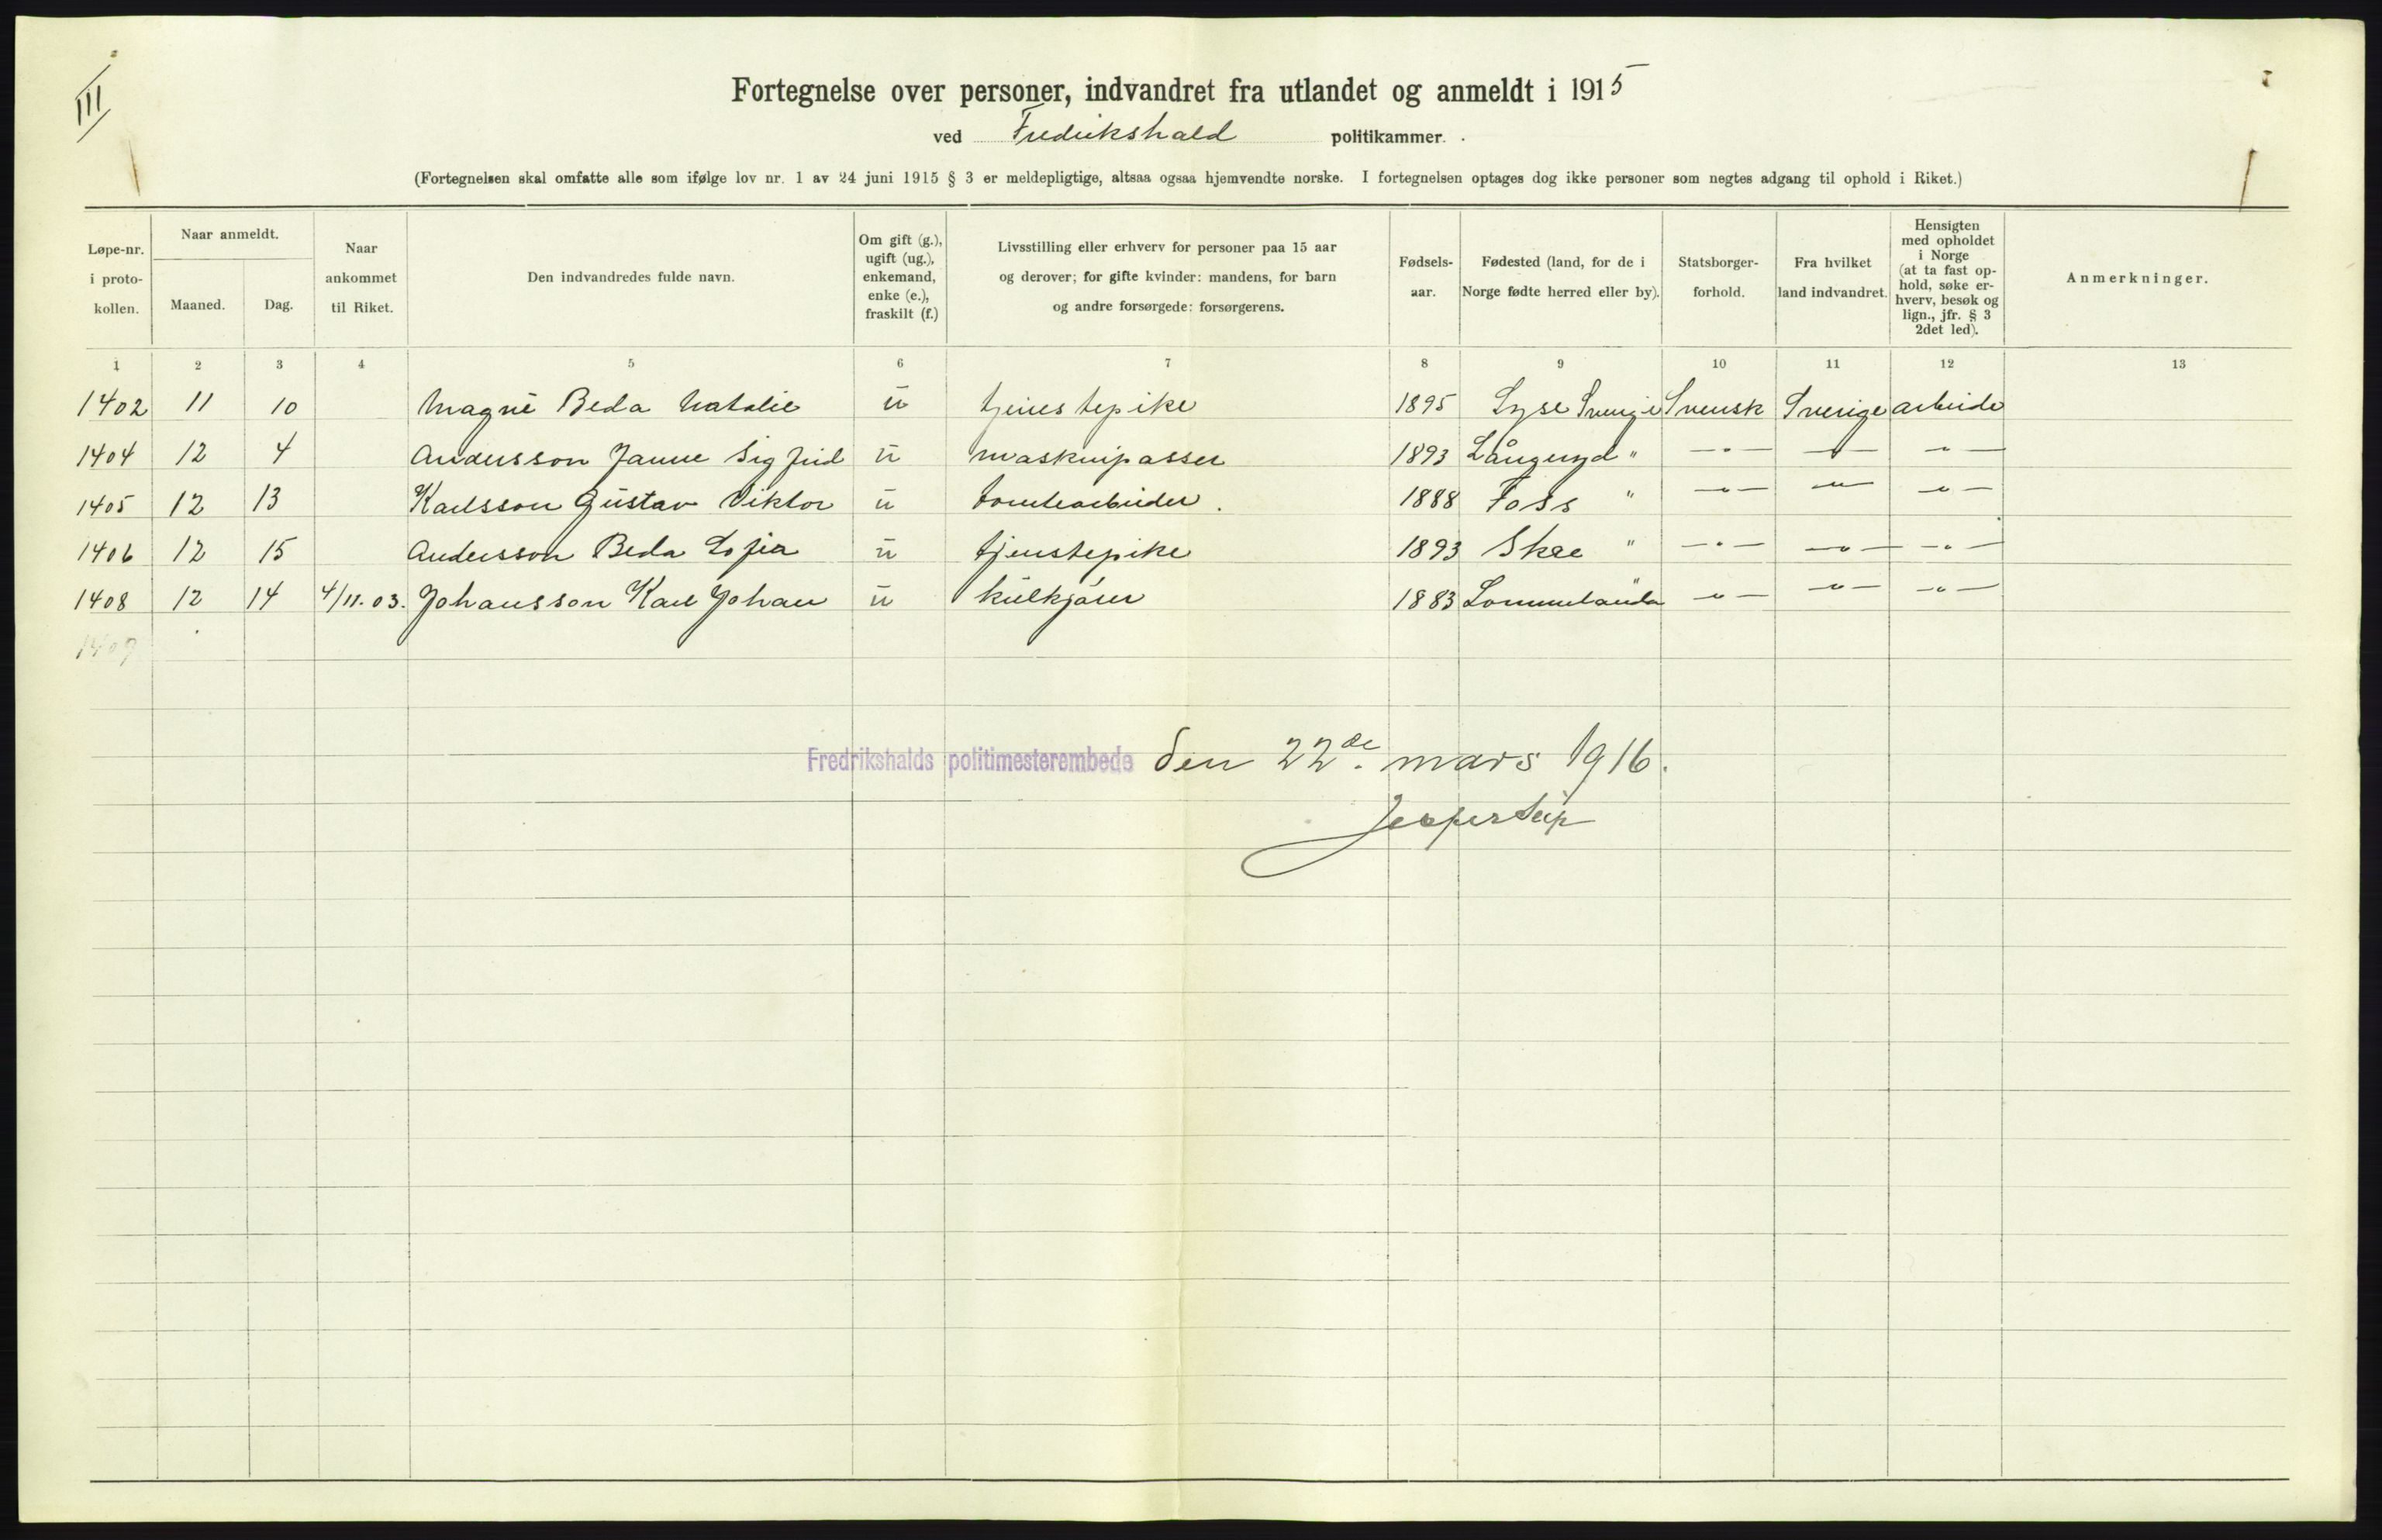 III
Fortegnelse over personer, indvandret fra utlandet og anmeldt i 1915
ved Fredrikshald politikammer.
(Fortegnelsen skal omfatte alle som ifølge lov nr. 1 av 24 juni 1915 § 3 er meldepligtige, altsaa ogsaa hjemvendte norske. I fortegnelsen optages dog ikke personer som negtes adgang til ophold i Riket.)
Løpe-nr. i proto- kollen.
Naar anmeldt.
Maaned.
Dag.
Naar ankommet til Riket.
Den indvandredes fulde navn.
Om gift (g.), ugift (ug.), enkemand, enke (e.), fraskilt (f.)
Livsstilling eller erhverv for personer paa 15 aar og derover; for gifte kvinder: mandens, for barn og andre forsørgede: forsørgerens.
Fødsels- aar.
Fødested (land, for de i Norge fødte herred eller by).
Statsborger- forhold.
Fra hvilket land indvandret.
Hensigten med opholdet i Norge (at ta fast op- hold, søke er- hverv, besøk og lign., jfr. § 3 2det led).
Anmerkninger.
1 2 3 4 5 6 7 8 9 10 11 12 13
1402 11 10 Magni Beda Natalie u tjenestepike 1895 Lyse Sverige Svensk Sverige arbeide
1404 12 4 Andersson Janne Sigfrid u maskinpasser 1893 Långeryd " —"— —"— —"—
1405 12 13 Karlsson Gustav Viktor u tomtearbeider. 1888 Foss " —"— —"— —"—
1406 12 15 Andersson Beda Sofia u tjenstepike 1893 Skee " —"— —"— —"—
1408 12 14 4/11.03. Johansson Karl Johan u kulkjører 1883 Lommelanda " —"— —"— —"—
1409
Fredrikshalds politimesterembede den 22de mars 1916.
Jesper Seip